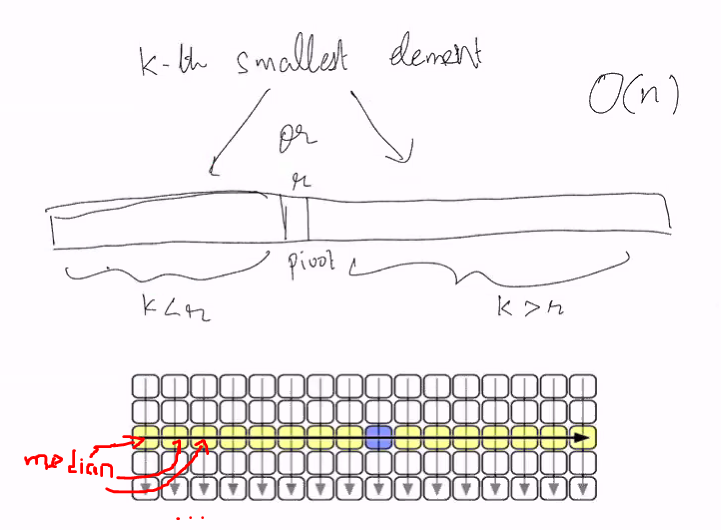 k-th smallest element
O(n)
or
r
pivot
k < r
k > r
median
...